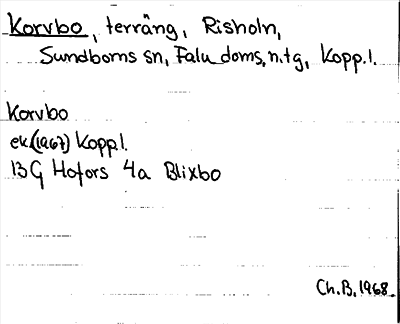 Korvbo, terräng, Risholn,
Sundborns sn, Falu doms. n. tg, Kopp. l.
Korvbo
ek. (1967) Kopp. l.
13G Hofors 4a Blixbo
Ch. B. 1968.